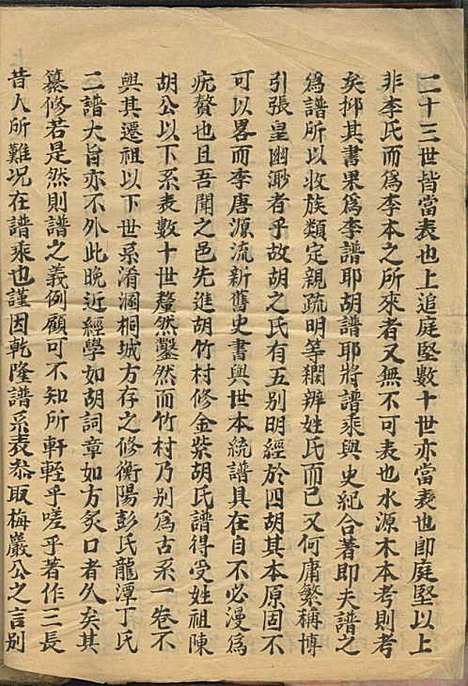 二十三世皆當表也上追庭堅數十世亦當表也即庭堅以上
非李氏而爲李本之所來者又無不可表也水源木本考則考
矣抑其書果爲李譜耶胡譜耶將譜乘與史紀合著即夫譜之
爲譜所以收族類定親疏明等襴辨姓氏而已又何庸繁稱博
引張皇幽渺者乎故胡之氏有五别明經於四胡其本原固不
可以畧而李唐源流新舊史書與世本統譜具在自不必漫爲
疣贅也且吾聞之邑先進胡竹村修金紫胡氏譜得受姓祖陳
胡公以下系表數十世釐然鑿然而竹村乃别爲古系一卷不
與其遷祖以下世系淆溷桐城方存之修衡陽彭氏龍潭丁氏
二譜大旨亦不外此晚近經學如胡詞章如方炙口者久矣其
纂修若是然則譜之義例顧可不知所軒輊乎嗟乎著作三長
昔人所難况在譜乘也謹因乾隆譜系表叅取梅巖公之言别